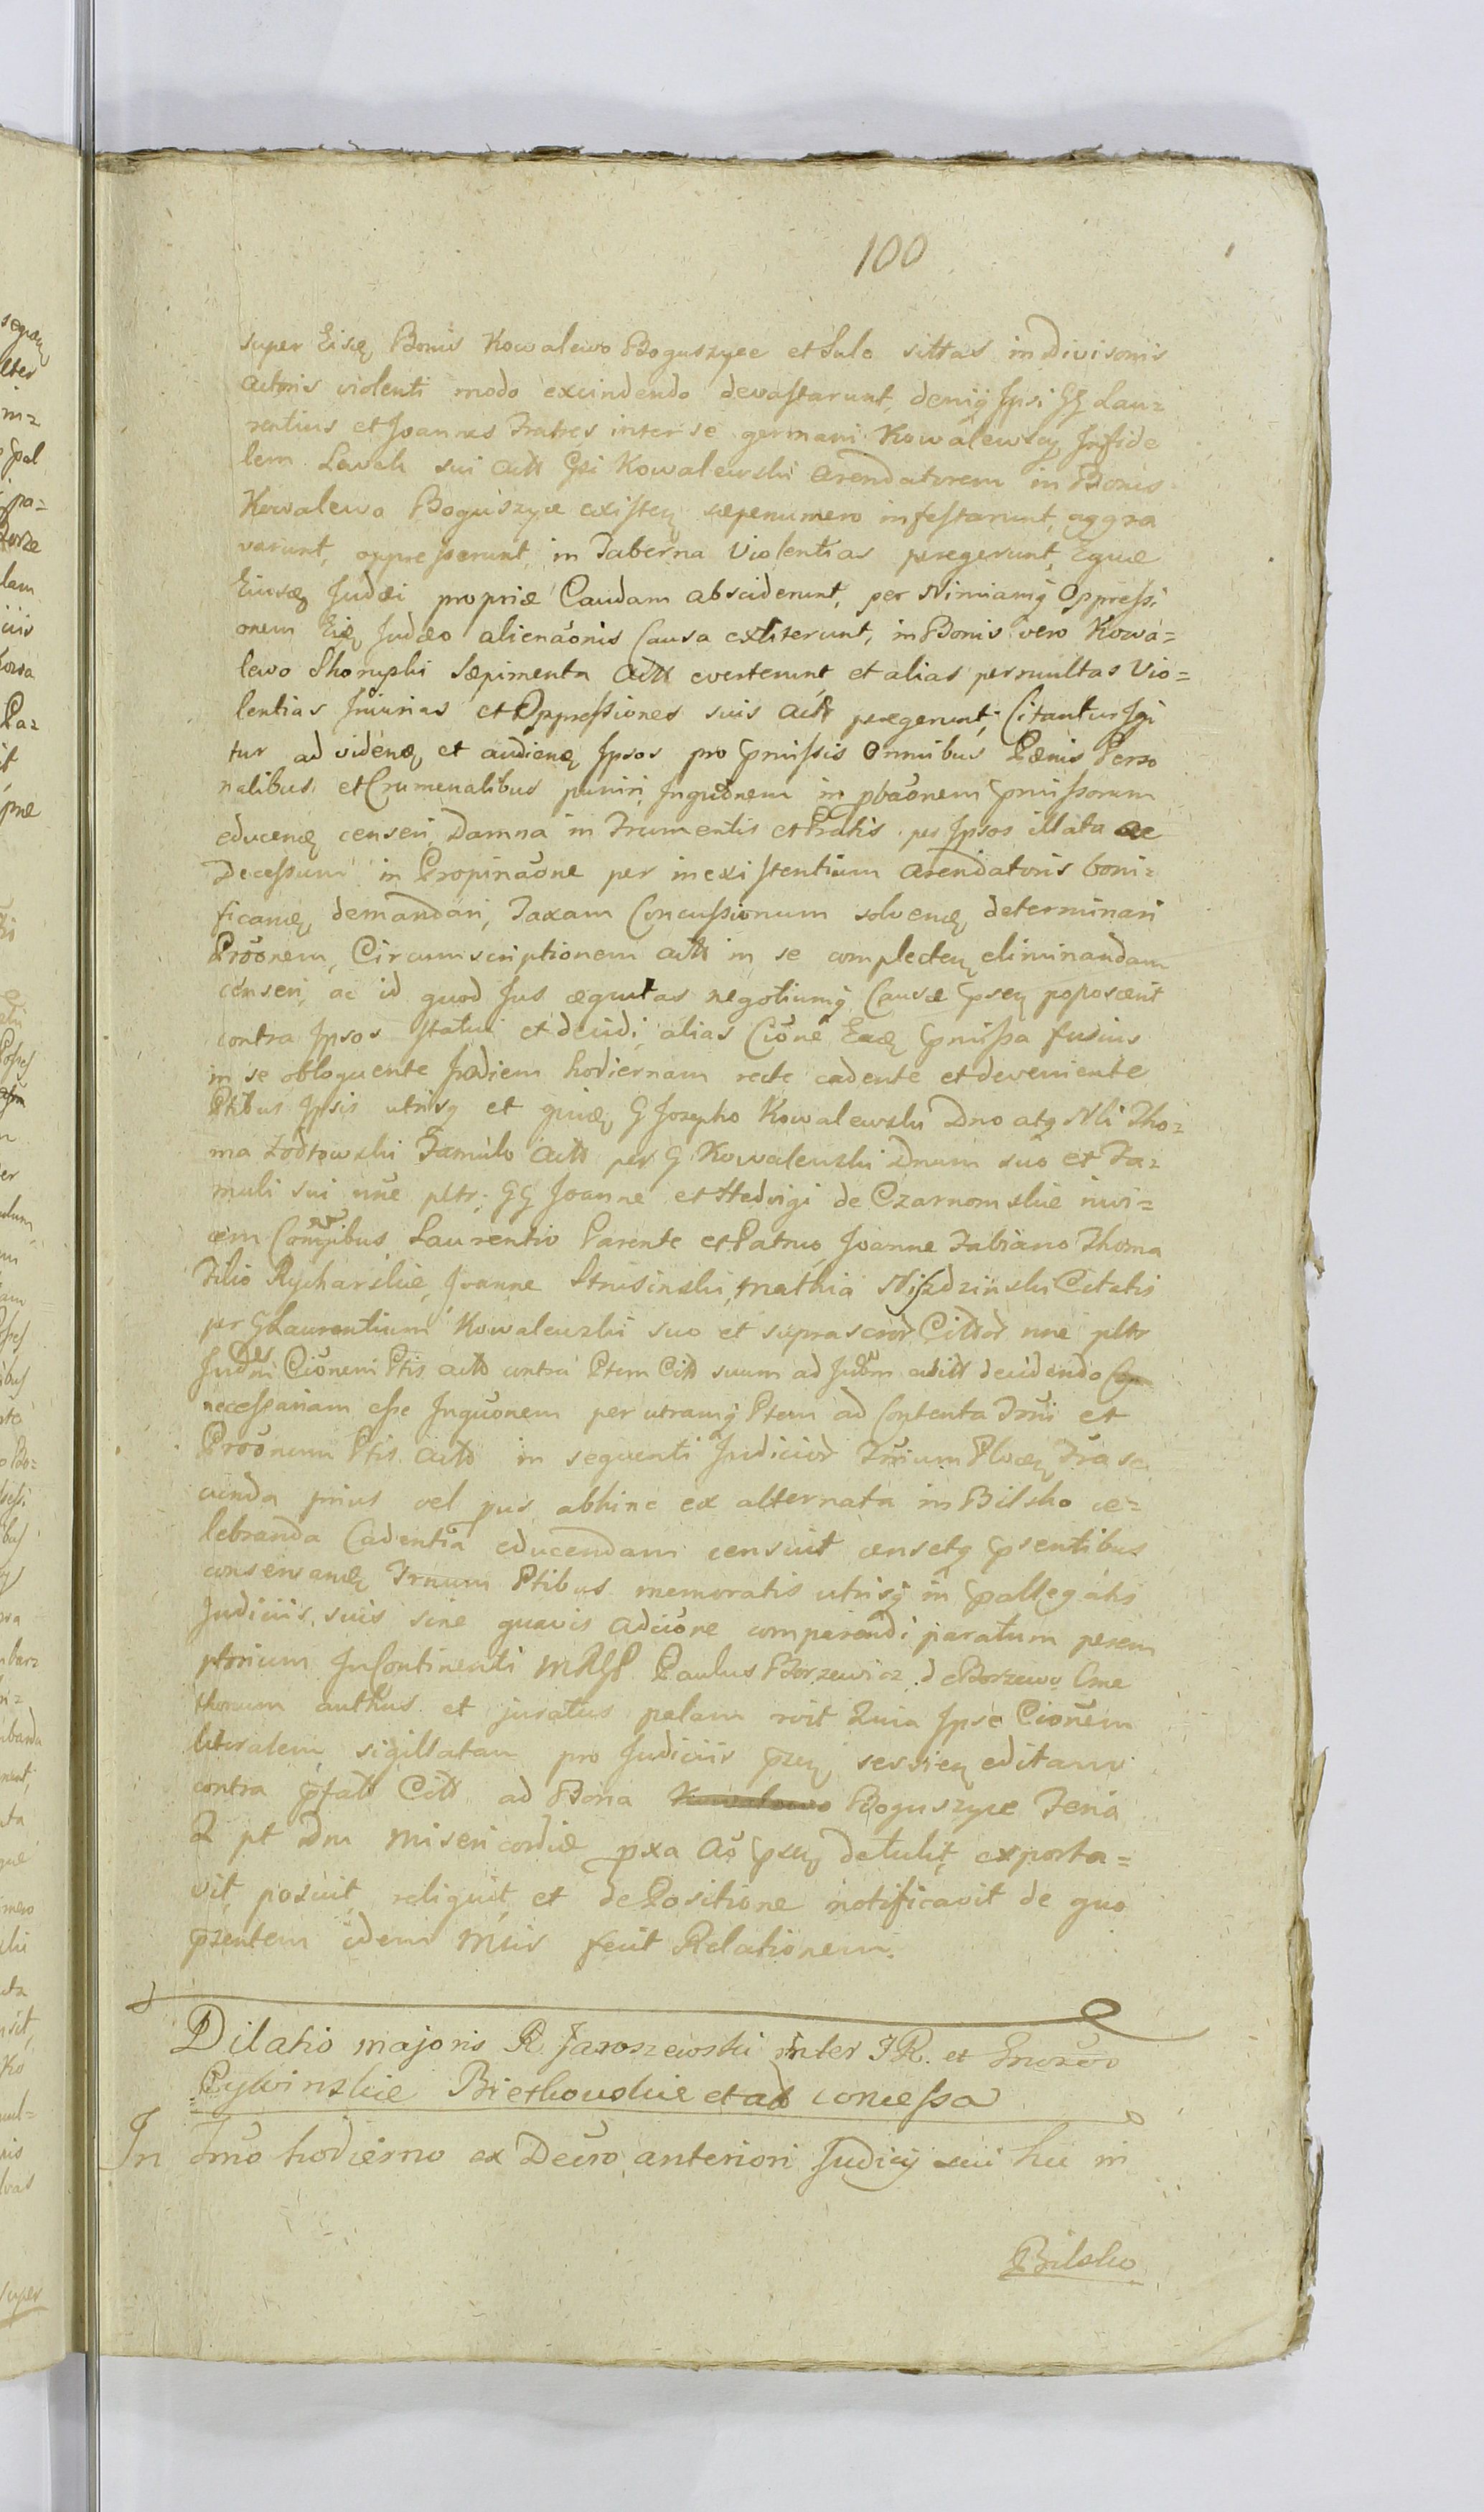 100
super Eisq Bonis Kowalewo Boguszyce et Sulo sittas in Divisonis
actnis violenti modo excindendo devastarunt, deniq Ipsi GG Lau=
rentius et Joannes Fratres inter se germani Kowalewscy Infide
lem Lewek sui actt Gsi Kowalewski arendatorem in Bonis
Kowalewo Boguszyce existen saepenumero infestarunt, aggra
varunt, oppresserunt, in Taberna Violentias peregerunt, Equae
Eiusdq Judaei propriae Caudam absciderunt, per Nimiamq Oppressi
onem Eidq Judaeo alienaonis Causa extiterunt, in Bonis vero Kowa=
lewo Skorupki Saepimenta actt everterunt et alias permultas Vio=
lentias Iniurias et Oppressiones suis actt peregerunt; Citantur Igi
tur ad videnq et audienq Ipsos pro pmissis Omnibus Paenis Perso
nalibus et Crumenalibus puniri, Inquonem in pbaonem pmissorum
educenq censeri, Damna in Frumentis et Pratis per Ipsos illata ac
Decessum in Propinaone per inexistentium arendatoris boni=
ficanq demandari, Taxam Concussionum solvenq determinari
Proonem, Circumscriptionem actt in se complecten eliminandam
censeri, ac id quod Jus aequitas negotiumq Causae psen poposcerit
contra Ipsos statui et decidi, alias Cione Eadq pmissa fusius
in se obloquente In diem hodiernam recte cadente et deveniente
Ptibus Ipsis utrisq et quidq G Josepho Kowalewski Dno atq Nli Tho=
ma Zodtowski Famulo actt per G Kowalewski Dnum suo et Fa=
muli sui nne pltr; GG Joanne et Hedvigi de Czarnomskie invi=
cem Conjibus Laurentio Parente et Patruo, Joanne Fabiano Thoma
Filio Rycharskie, Joanne Strusinski, Mathia Niszdzinski Citatis
per G Laurentium Kowalewski suo et suprascrod Cittod nne pltr
Judm Cionem Ptis actt contra Ptem Citt suum ad Judm aditt decidendo
necessariam esse Inquonem per utramq Ptem ad Contenta Irui et
Proonum Ptis actt in sequenti Judiciod Trrium Plocen Fra se
cunda prius vel pus abhinc ex alternata in Bilsko ce=
lebranda Cadentia educendam censuit censetq psentibus
conservanq Trnum Ptibus memoratis utrisq in pallegatis
Judiciis suis sine quavis adcione comparendi paratum perem
ptorium In Continenti MRGP Paulus Borzewicz de Borzewo Cme
thonum authus et juratus palam rvit Quia Ipse Cionem
literalem sigillatam pro Judiciis psen sessien editam
contra pfatt Citt ad Bona Kowalewo Boguszyce Feria
2 pt Dm Misericordiae pxa Ao psen detulit, exporta=
vit, posuit, reliquit, et de Positione notificavit de quo
psentem idem Mris fecit Relationem.
Dilatio majoris R. Jaroszewski inter IR. et
Cywinskie Bietkowskie et ad concessa
In Trno hodierno ex Decro anteriori Judicij sui hic in
Bilsko